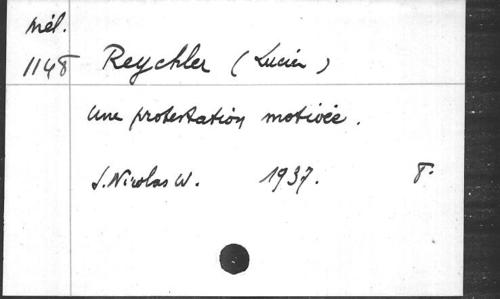 Mél.
1148 Reychler (Lucien)
Une protestation motivée.
S. Nicolas W. 1937. 8°